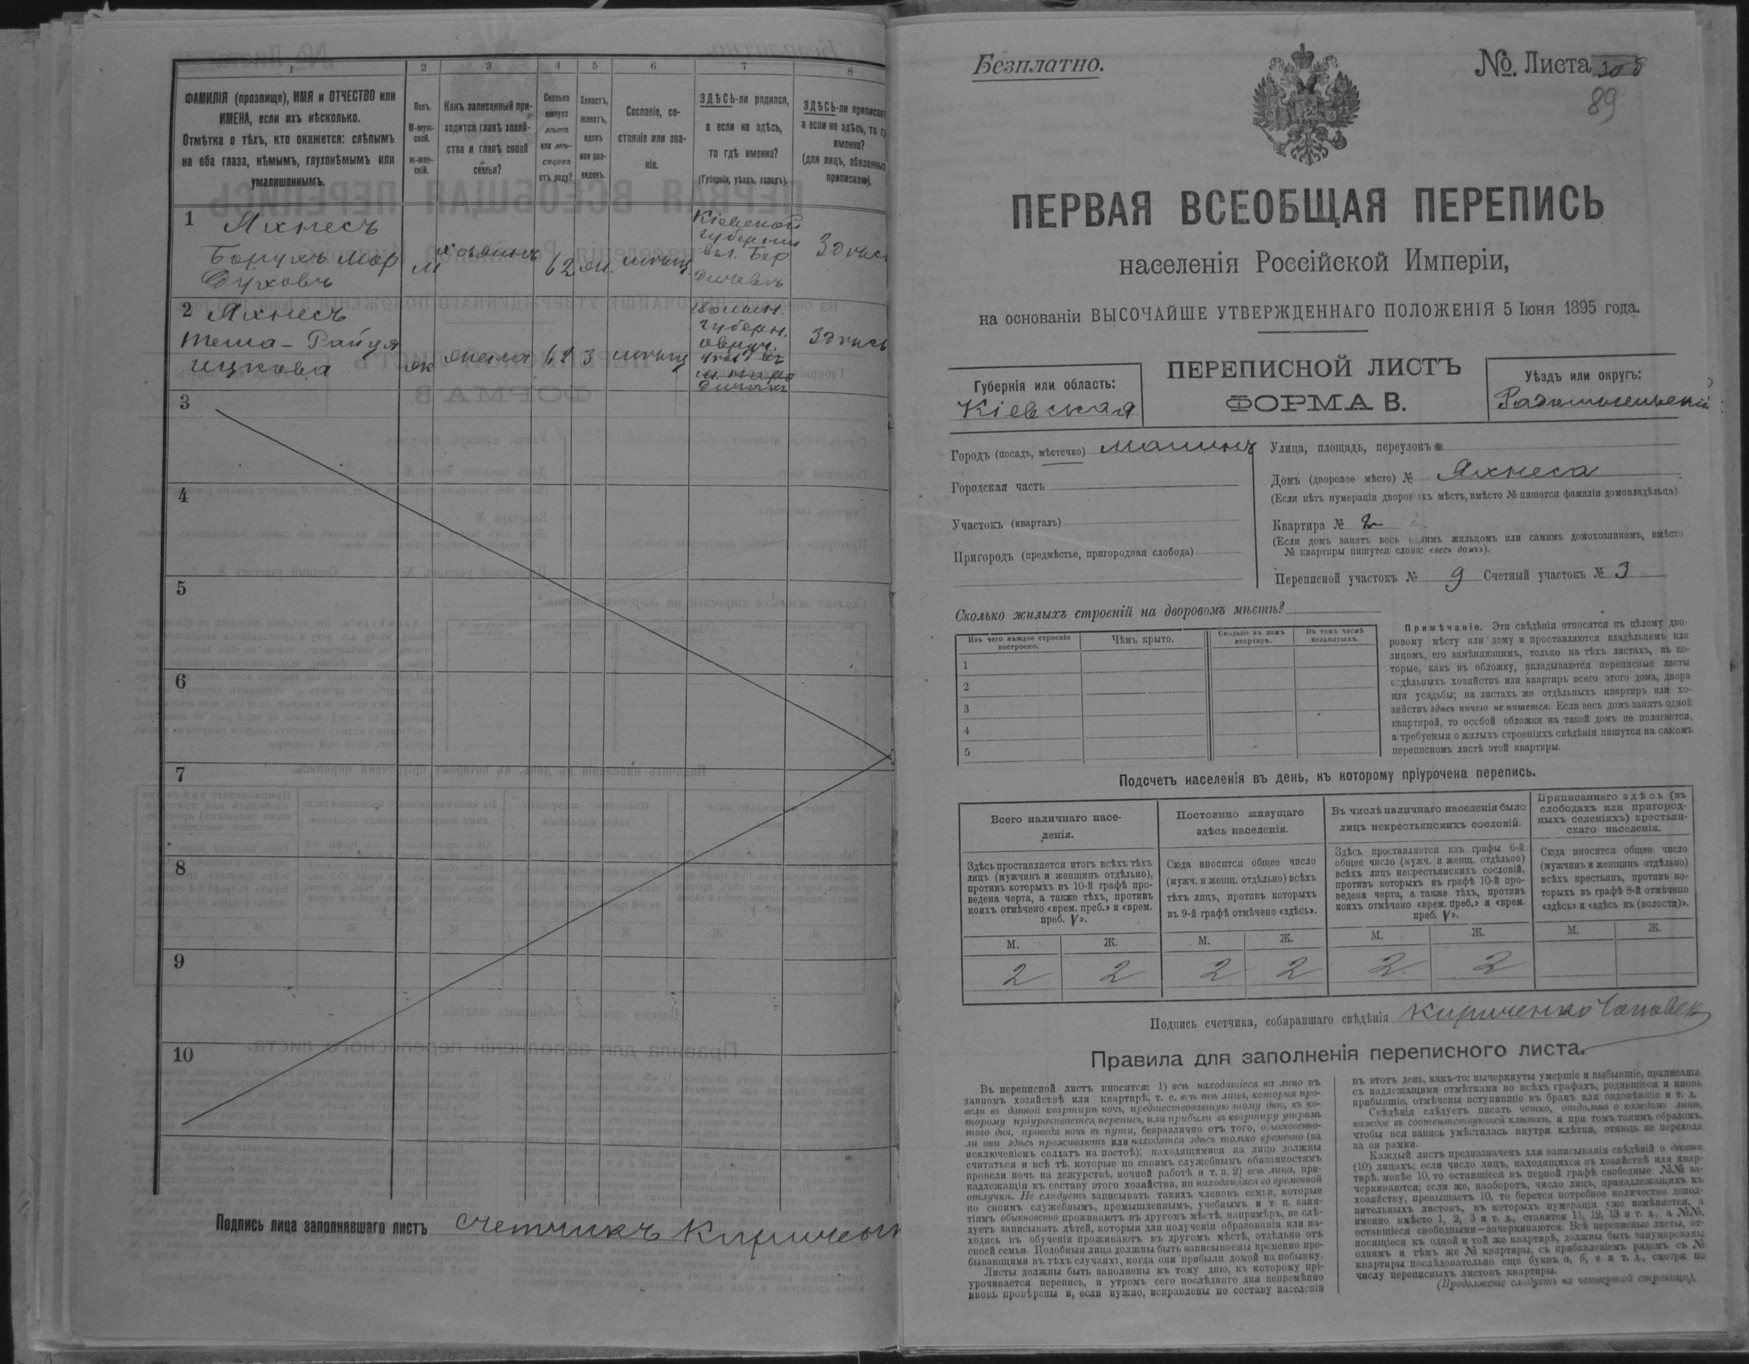 1 2 3 4 5 6 7 8
ФАМИЛІЯ (прозвище), ИМЯ и ОТЧЕСТВО или
ИМЕНА, если ихъ нѣсколько.
Отмѣтка о тѣхъ, кто окажется: слѣпымъ
на оба глаза, нѣмымъ, глухонѣмымъ или
умалишеннымъ.
Полъ.
М-муж-
ской.
Ж-жен-
скій.
Какъ записанный при-
ходится главѣ хозяй-
ства и главѣ своей
семьи?
Сколько
минуло
лѣтъ
или мѣ-
сяцевъ
отъ роду?
Холостъ,
женатъ,
вдовъ
или раз-
веденъ.
Сословіе, со-
стояніе или зва-
ніе.
ЗДѢСЬ-ли родился,
а если не здѣсь,
то гдѣ именно?
(Губернія, уѣздъ, городъ).
ЗДѢСЬ-ли приписанъ
а если не здѣсь, то г
именно?
(для лицъ, обязанныхъ
припискою).
1 Яхнесъ
Борухъ Мор
Духовъ
м хозяинъ 62 жн. мѣщ.
Кіевской
губерніи
Бер
дичевъ
Здѣсь
2 Яхнесъ
Теша-Райця
Ицкова
ж жена 62 з мѣщ
Волын.
губерн.
Овруч.
Здѣсь
3
4
5
6
7
8
9
10
Подпись лица заполнявшаго листъ Счетчикъ Киричен
Безплатно.
№. Листа 305
89
ПЕРВАЯ ВСЕОБЩАЯ ПЕРЕПИСЬ
населенія Россійской Имперіи,
на основаніи ВЫСОЧАЙШЕ УТВЕРЖДЕННАГО ПОЛОЖЕНІЯ 5 Іюня 1895 года.
ПЕРЕПИСНОЙ ЛИСТЪ
ФОРМА В.
Губернія или область:
Кіевская
Уѣздъ или округъ:
Радомысльскій
Городъ (посадъ, мѣстечко) Малинъ
Городская часть
Участокъ (кварталъ)
Пригородъ (предмѣстье, пригородная слобода)
Улица, площадь, переулокъ
Домъ (дворовое мѣсто) № Яхнеса
(Если нѣтъ нумераціи дворовыхъ мѣстъ, вмѣсто № пишется фамилія домовладѣльца)
Квартира № 2
(Если домъ занятъ весь однимъ жильцомъ или самимъ домохозяиномъ, вмѣсто
№ квартиры пишутся слова: «весь домъ»).
Переписной участокъ № 9 Счетный участокъ № 3
Сколько жилыхъ строеній на дворовомъ мѣстѣ?
Изъ чего каждое строеніе
построено.
Чѣмъ крыто.
Сколько въ немъ
квартиръ.
Въ томъ числѣ
незанятыхъ.
1
2
3
4
5
Примѣчаніе. Эти свѣдѣнія относятся къ цѣлому дво-
ровому мѣсту или дому и проставляются владѣльцемъ или
лицомъ, его замѣняющимъ, только на тѣхъ листахъ, въ ко-
торые, какъ въ обложку, вкладываются переписные листы
отдѣльныхъ хозяйствъ или квартиръ всего этого дома, двора
или усадьбы; на листахъ же отдѣльныхъ квартиръ или хо-
зяйствъ здѣсь ничего не пишется. Если весь домъ занятъ одной
квартирой, то особой обложки на такой домъ не полагается,
а требуемыя о жилыхъ строеніяхъ свѣдѣнія пишутся на самомъ
переписномъ листѣ этой квартиры.
Подсчетъ населенія въ день, къ которому пріурочена перепись.
Всего наличнаго насе-
ленія.
Здѣсь проставляется итогъ всѣхъ тѣхъ
лицъ (мужчинъ и женщинъ отдѣльно),
противъ которыхъ въ 10-й графѣ про-
ведена черта, а также тѣхъ, противъ
коихъ отмѣчено «врем. преб.» и «врем.
преб. V».
Постоянно живущаго
здѣсь населенія.
Сюда вносится общее число
(мужч. и женщ. отдѣльно) всѣхъ
тѣхъ лицъ, противъ которыхъ
въ 9-й графѣ отмѣчено «здѣсь».
Въ числѣ наличнаго населенія было
лицъ некрестьянскихъ сословій.
Здѣсь проставляется изъ графы 6-й
общее число (мужч. и женщ. отдѣльно)
всѣхъ лицъ некрестьянскихъ сословій,
противъ которыхъ въ графѣ 10-й про-
ведена черта, а также тѣхъ, противъ
коихъ отмѣчено «врем. преб.» и «врем.
преб. V».
Приписаннаго здѣсь (въ
слободахъ или пригород-
ныхъ селеніяхъ) крестьян-
скаго населенія.
Сюда вносится общее число
(мужчинъ и женщинъ отдѣльно)
всѣхъ крестьянъ, противъ ко-
торыхъ въ графѣ 8-й отмѣчено
«здѣсь» и «здѣсь къ (волости)».
М. Ж. М. Ж. М. Ж. М. Ж.
2 2 2 2 2 2
Подпись счетчика, собиравшаго свѣдѣнія Кириченко
Правила для заполненія переписного листа.
Въ переписной листъ вносятся: 1) всѣ находящіеся на лицо въ
данномъ хозяйствѣ или квартирѣ, т. е. всѣ тѣ лица, которыя про-
вели въ данной квартирѣ ночь, предшествовавшую тому дню, къ ко-
торому пріурочивается перепись, или прибыли въ квартиру утромъ
того дня, проведя ночь въ пути, безразлично отъ того, обыкновенно-
ли они здѣсь проживаютъ или находятся здѣсь только временно (за
исключеніемъ солдатъ на постоѣ); находящимися на лицо должны
считаться и всѣ тѣ, которые по своимъ служебнымъ обязанностямъ
провели ночь на дежурствѣ, ночной работѣ и т. п. 2) всѣ лица, при-
надлежащія къ составу этого хозяйства, но находящіяся во временной
отлучкѣ. Не слѣдуетъ записывать такихъ членовъ семьи, которые
по своимъ служебнымъ, промышленнымъ, учебнымъ и т. п. заня-
тіямъ обыкновенно проживаютъ въ другомъ мѣстѣ, напримѣръ, не слѣ-
дуетъ записывать дѣтей, которыя для полученія образованія или на-
ходясь въ обученіи проживаютъ въ другомъ мѣстѣ, отдѣльно отъ
своей семьи. Подобныя лица должны быть записываемы временно про-
бывающими въ тѣхъ случаяхъ, когда они прибыли домой на побывку.
Листы должны быть заполнены къ тому дню, къ которому прі-
урочивается перепись, и утромъ сего послѣдняго дня непремѣнно
вновь провѣрены и, если нужно, исправлены по составу населенія
въ этотъ день, какъ-то: вычеркнуты умершіе и выбывшіе, приписаны,
съ надлежащими отмѣтками во всѣхъ графахъ, родившіеся и вновь
прибывшіе, отмѣчены вступившіе въ бракъ или овдовѣвшіе и т. д.
Свѣдѣнія слѣдуетъ писать четко, отдѣльно о каждомъ лицѣ,
каждое въ соотвѣтствующей клѣткѣ, и при томъ такимъ образомъ,
чтобы вся запись умѣстилась внутри клѣтки, отнюдь не переходя
за ея рамки.
Каждый листъ предназначенъ для записыванія свѣдѣній о десяти
(10) лицахъ; если число лицъ, находящихся въ хозяйствѣ или квар-
тирѣ, менѣе 10, то оставшіеся въ первой графѣ свободные №№ за-
черкиваются; если же, наоборотъ, число лицъ, принадлежащихъ къ
хозяйству, превышаетъ 10, то берется потребное количество допол-
нительныхъ листовъ, въ которыхъ нумерація уже измѣняется, а
именно вмѣсто 1, 2, 3 и т. д., ставится 11, 12, 13 и т. д., а №№,
оставшіеся свободными—зачеркиваются. Всѣ переписные листы, от-
носящіеся къ одной и той же квартирѣ, должны быть занумерованы
однимъ и тѣмъ же № квартиры, съ прибавленіемъ рядомъ съ №
квартиры послѣдовательно еще буквъ а, б, в и т. д., смотря по
числу переписныхъ листовъ квартиры.
(Продолженіе слѣдуетъ на четвертой страницѣ).